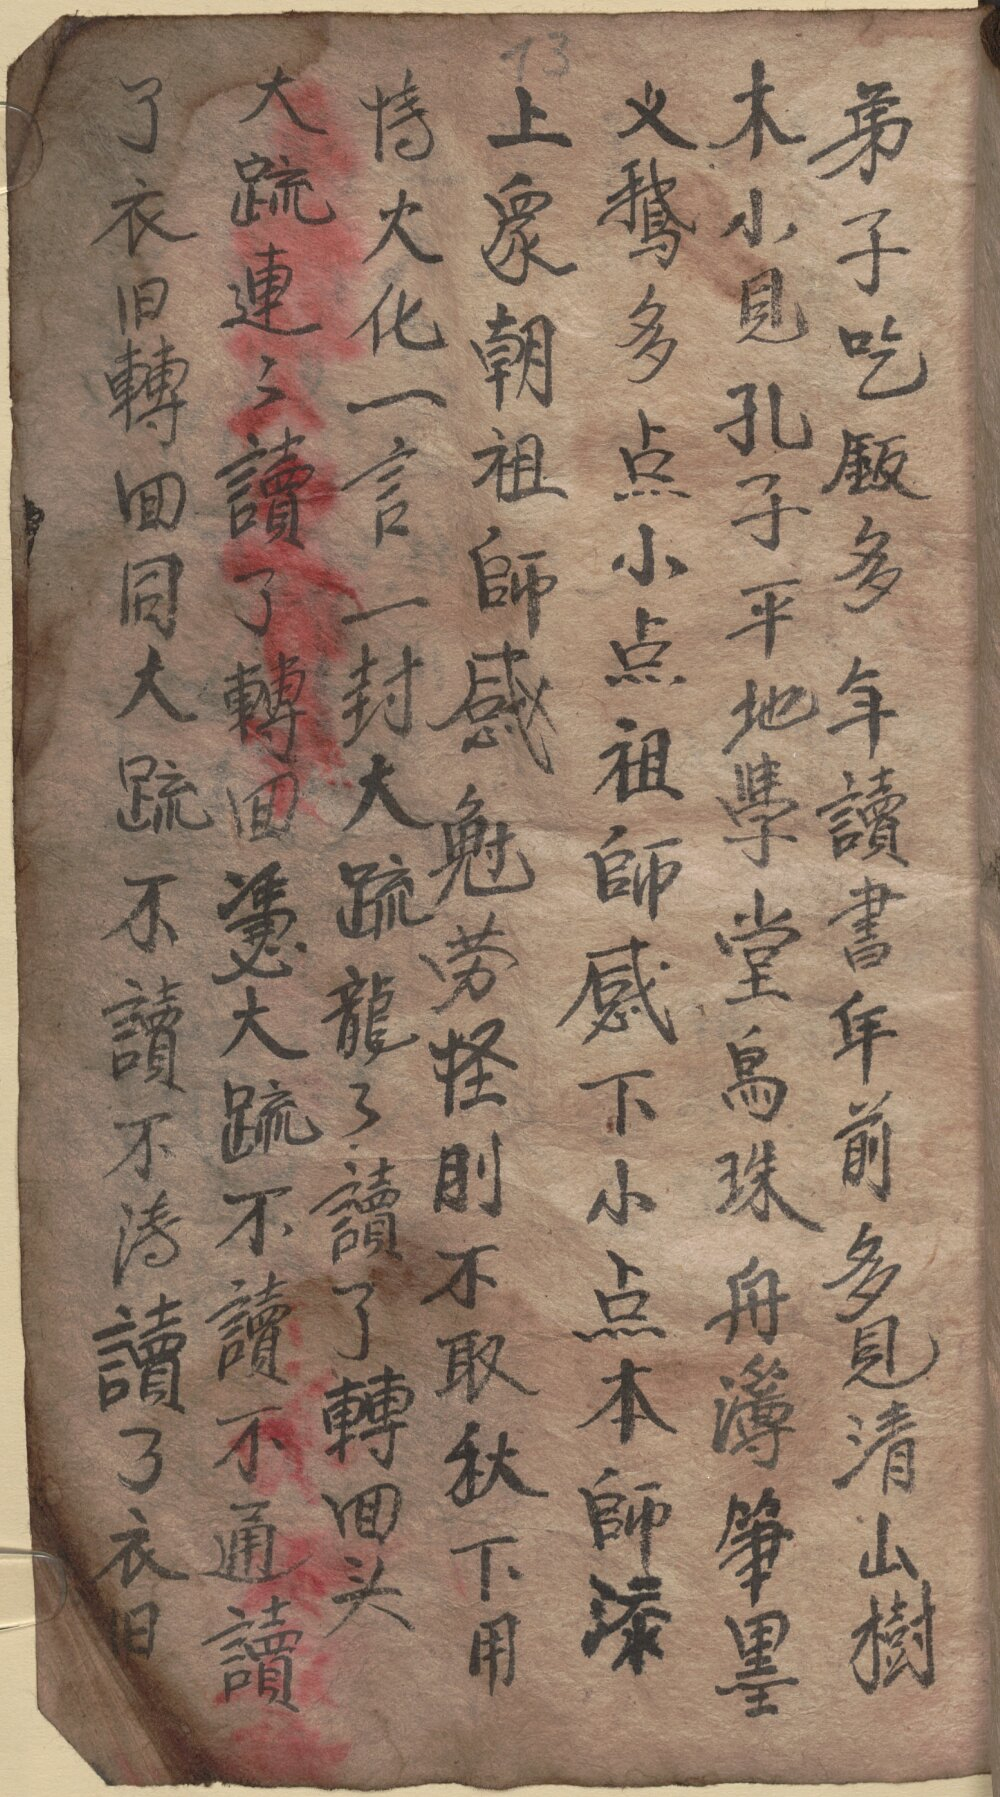 弟子吃飯多年讀書年前多見清山樹
木小見孔子平地學堂烏珠舟簿筆墨
义鵝多点小点祖師感下小点本師漆
上眾朝祖師感勉劳怪則不取秋下用
火化一言一封大䟽龍了讀了轉回头
大䟽連〻讀了轉回大䟽不讀不通讀
了衣旧轉回同大䟽不讀不讀了衣日
73